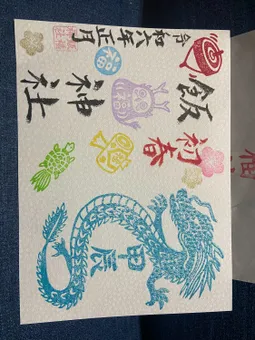 令和六年正月
飯神社
初春
福
甲辰